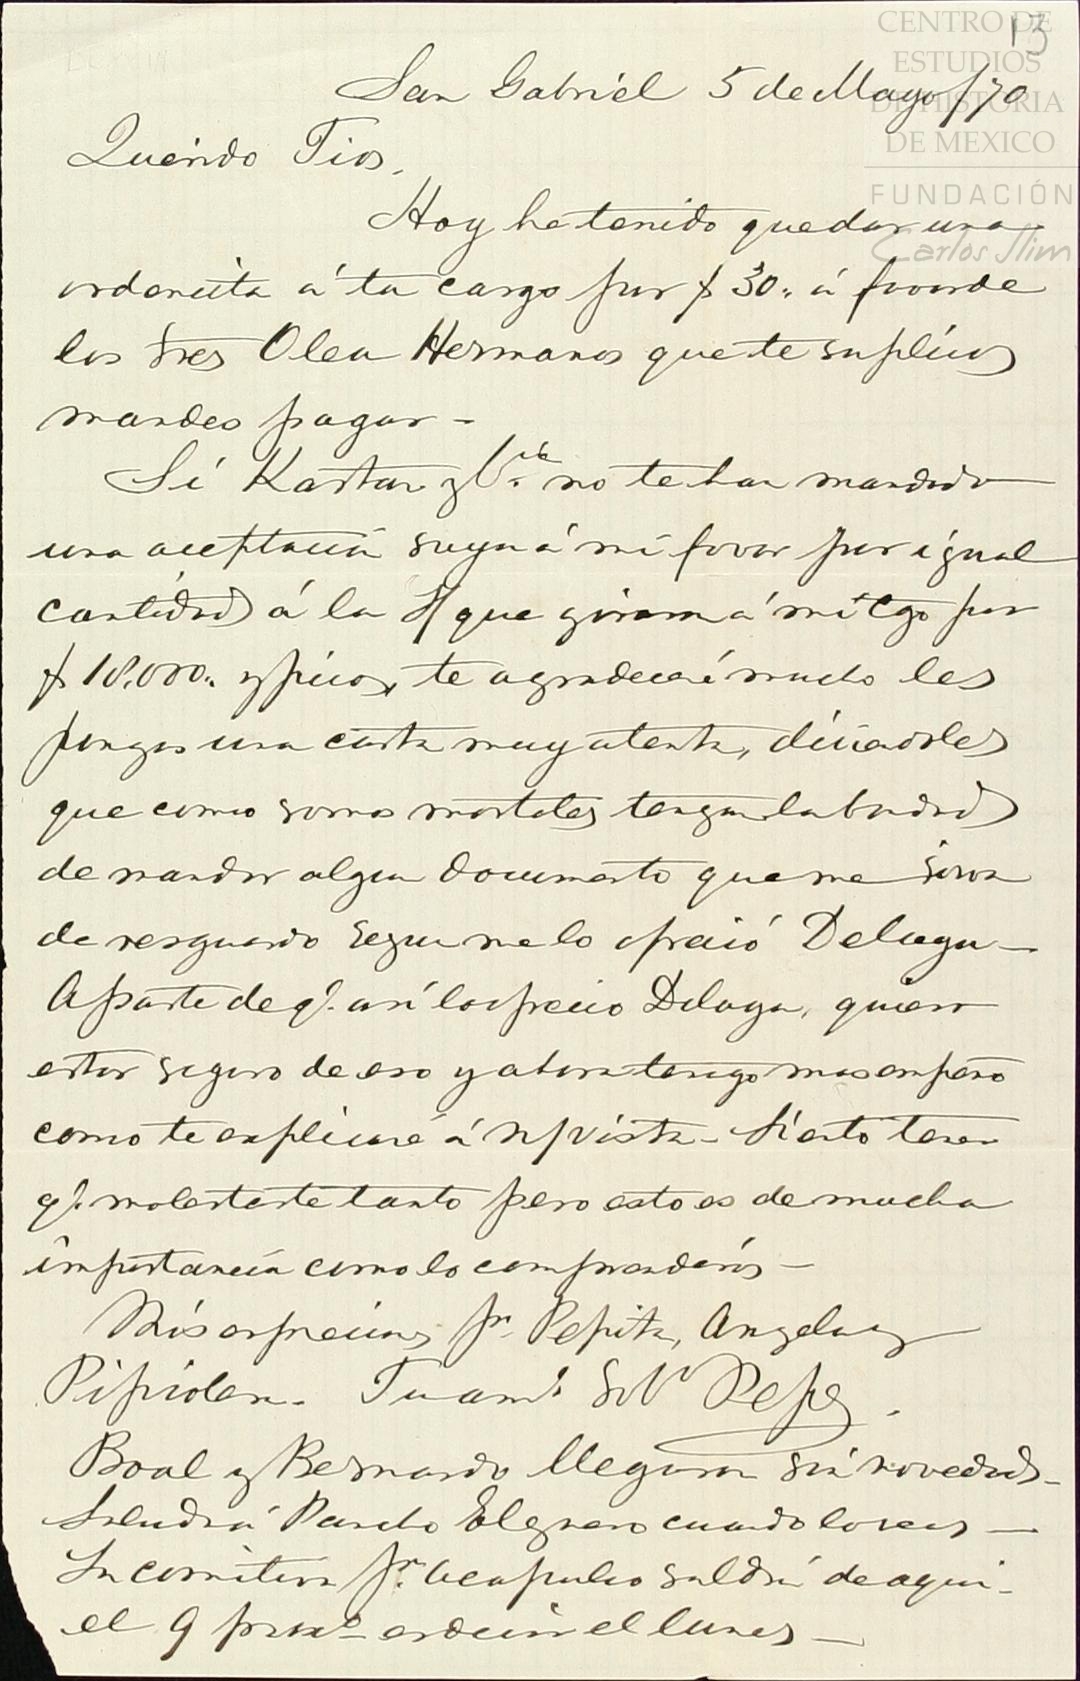 13
CENTRO DE
ESTUDIOS
DE HISTORIA
DE MEXICO
FUNDACIÓN
Carlos Slim
San Gabriel 5 de Mayo /70
Querido Tios.
Hoy he tenido que dar una
ordencita á tu cargo por $ 30. á favor de
los Sres Olea Hermanos que te suplico
mandes pagar -
Si Kastan y Cia no te han mandado
una aceptacion suya á mi favor por igual
cantidad á la que giraron á mi cgo por
$ 18.000. y pico, te agradeceré mucho les
pongas una carta muy atenta, diciendoles
que como somos mortales tengan la bondad
de mandar algun documento que me sirva
de resguardo segun me lo ofreció Delaga -
Aparte de q. así lo ofrecio Delaga, quiero
estar seguro de eso y ahora tengo mas empeño
como te explicaré á n/ vista - Siento tener
q. molestarte tanto pero esto es de mucha
importancia como lo comprenderás -
Mis expresiones pr Pepita, Angela y
Tu am. Sobo Pepe.
Boal y Bernardo llegaron sin novedad -
Saluda á Pancho Elguero cuando lo veas -
La comitiva pr. Acapulco saldrá de aqui -
el 9 prox.o es decir el lunes -